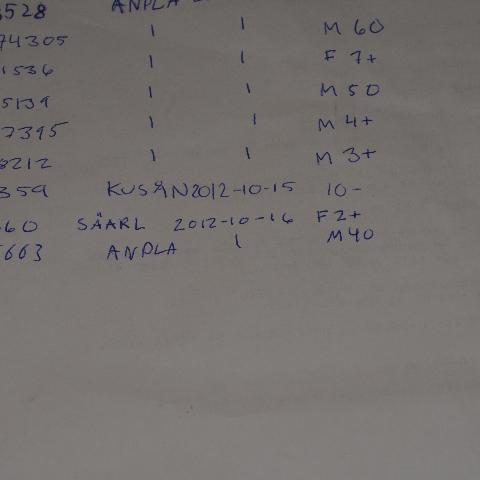 3528 ANPLA
74305 | | M 60
1536 | | F 7+
5139 | | M 50
7395 | | M 4+
8212 | | M 3+
359 KUSÅN 2012-10-15 10-
60 SÄARL 2012-10-16 F 2+
663 ANPLA | M 40